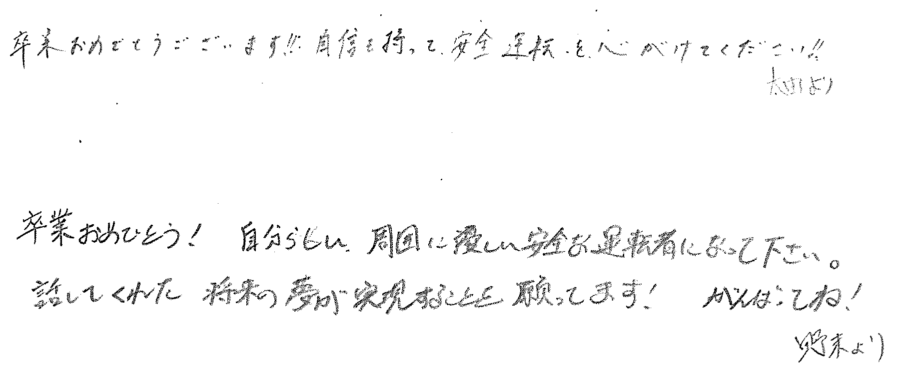 卒業おめでとうございます!! 自信を持って、安全運転を心がけてください!!
太田より
卒業おめでとう! 自分らしい、周囲に優しい安全な運転者になって下さい。
話してくれた将来の夢が実現することを願ってます! がんばってね!
野末より